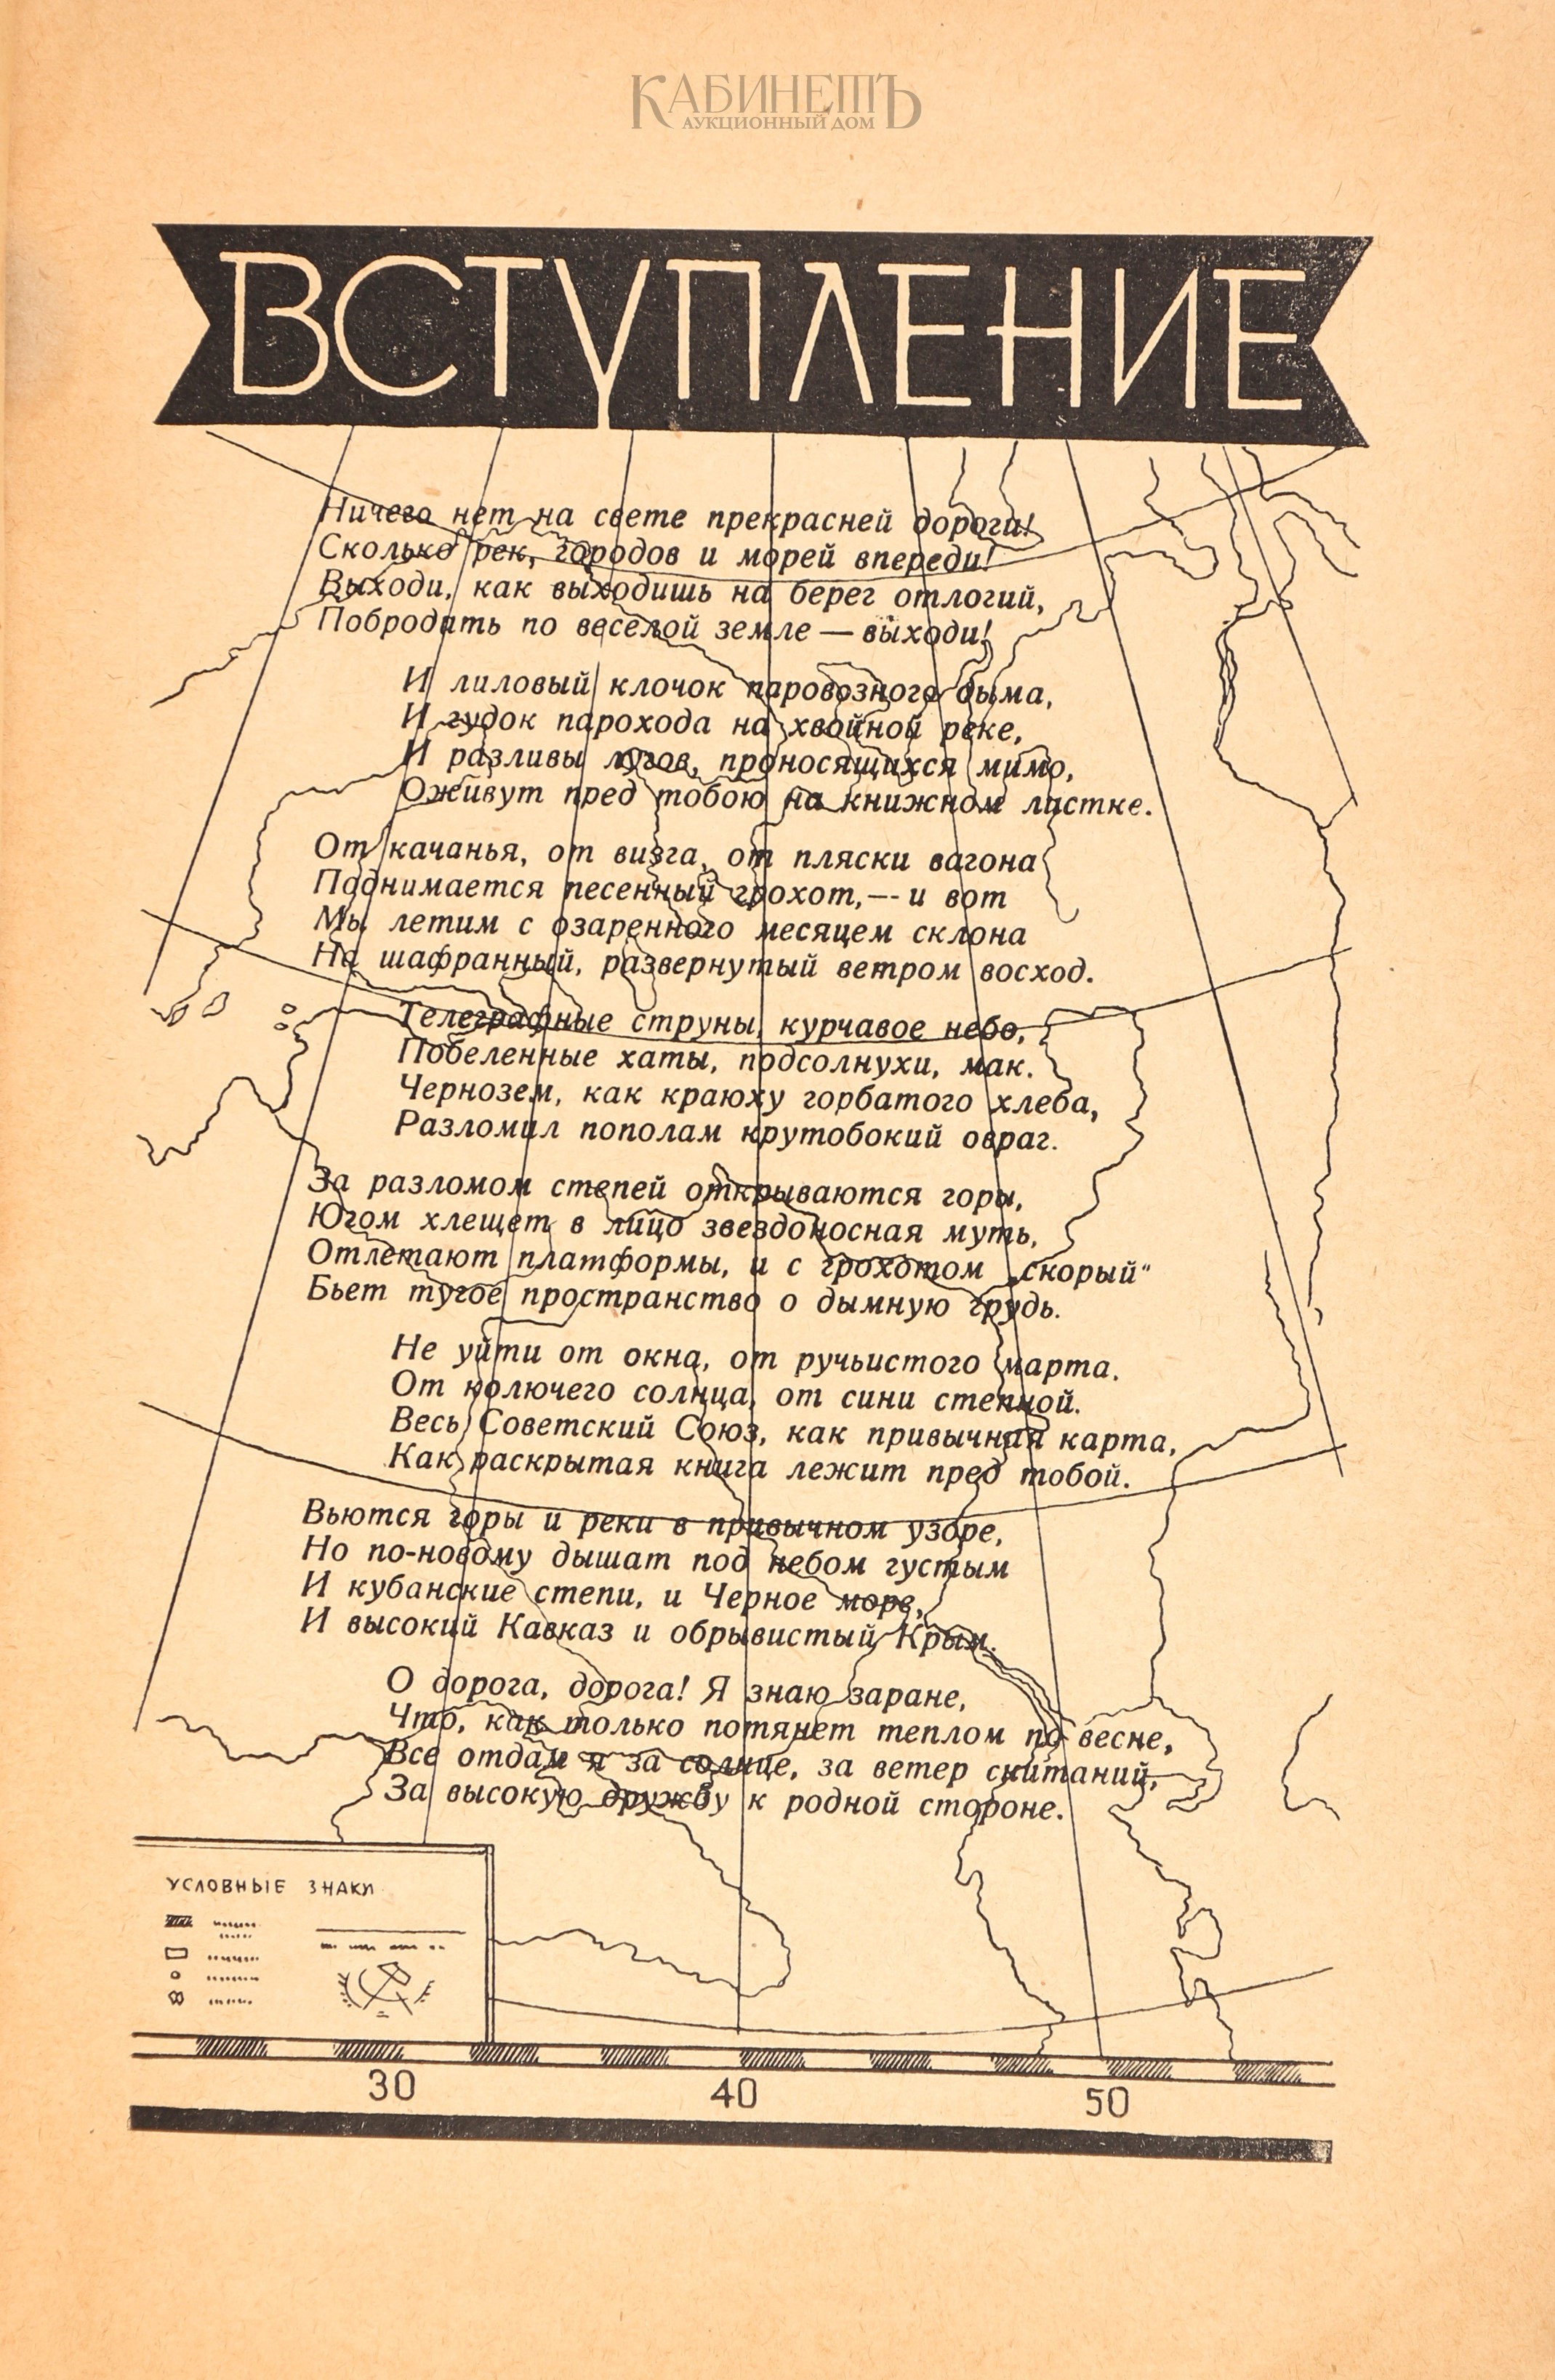 КАБИНЕТЪ
АУКЦИОННЫЙ ДОМ
ВСТУПЛЕНИЕ
Ничего нет на свете прекрасней дороги!
Сколько рек, городов и морей впереди!
Выходи, как выходишь на берег отлогий,
Побродить по веселой земле — выходи!
И лиловый клочок паровозного дыма,
И гудок парохода на хвойной реке,
И разливы лугов, проносящихся мимо,
Оживут пред тобою на книжном листке.
От качанья, от визга, от пляски вагона
Поднимается песенный грохот,—- и вот
Мы летим с озаренного месяцем склона
На шафранный, развернутый ветром восход.
Телеграфные струны, курчавое небо,
Побеленные хаты, подсолнухи, мак.
Чернозем, как краюху горбатого хлеба,
Разломил пополам крутобокий овраг.
За разломом степей открываются горы,
Югом хлещет в лицо звездоносная муть,
Отлетают платформы, и с грохотом „скорый"
Бьет тугое пространство о дымную грудь.
Не уйти от окна, от ручьистого марта.
От колючего солнца, от сини степной.
Весь Советский Союз, как привычная карта,
Как раскрытая книга лежит пред тобой.
Вьются горы и реки в привычном узоре,
Но по-новому дышат под небом густым
И кубанские степи, и Черное море,
И высокий Кавказ и обрывистый Крым.
О дорога, дорога! Я знаю заране,
Что, как только потянет теплом по весне,
Все отдам я за солнце, за ветер скитаний,
За высокую дружбу к родной стороне.
УСЛОВНЫЕ ЗНАКИ
30 40 50